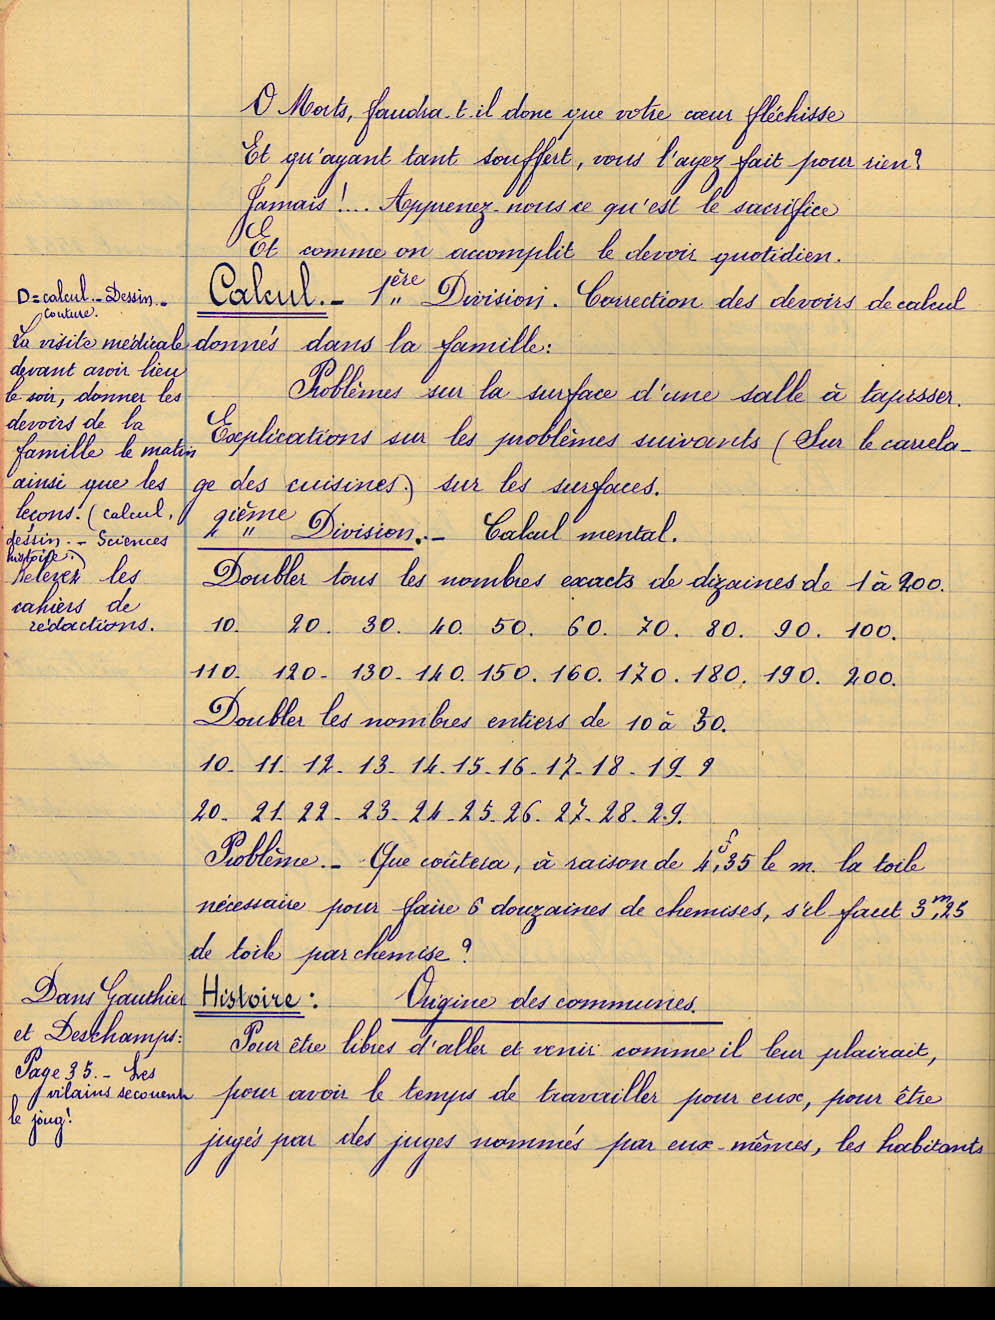 O Morts, faudra-t-il donc que votre cœur fléchisse
Et qu'ayant tant souffert, vous l'ayez fait pour rien?
Jamais!... Apprenez-nous ce qu'est le sacrifice
Et comme on accomplit le devoir quotidien.
D=calcul.-Dessin.-
couture.
La visite médicale
devant avoir lieu
le soir, donner les
devoirs de la
famille le matin
ainsi que les
leçons. (calcul,
dessin.- Sciences
histoire.)
Relever les
cahiers de
rédactions.
Calcul.- 1ère Division. Correction des devoirs de calcul
donnés dans la famille:
Problèmes sur la surface d'une salle à tapisser.
Explications sur les problèmes suivants (Sur le carrela-
ge des cuisines.) sur les surfaces.
2ième Division.- Calcul mental.
Doubler tous les nombres exacts de dizaines de 1 à 200.
10. 20. 30. 40. 50. 60. 70. 80. 90. 100.
110. 120- 130- 140. 150. 160. 170. 180. 190. 200.
Doubler les nombres entiers de 10 à 30.
10- 11. 12- 13- 14-15-16-17-18-19-2
20- 21. 22- 23- 24-25-26-27-28.29.
Problème.- Que coûtera, à raison de 4f,35 le m. la toile
nécessaire pour faire 6 douzaines de chemises, s'il faut 3m,25
de toile par chemise?
Dans Gauthier
et Deschamps:
Page 35.- Les
vilains secouent
le joug!
Histoire: Origine des communes.
Pour être libres d'aller et venir comme il leur plairait,
pour avoir le temps de travailler pour eux, pour être
jugés par des juges nommés par eux-mêmes, les habitants